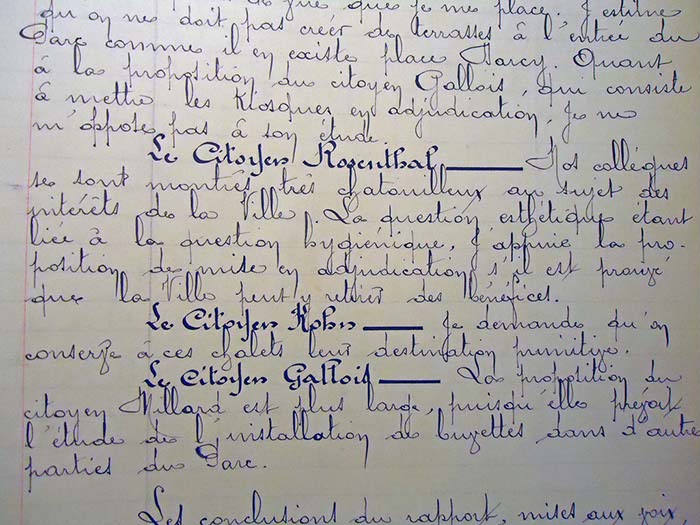 que je me place. J'estime
qu'on ne doit pas créer de terrasses à l'entrée du
Parc comme il en existe place Darcy. Quant
à la proposition du citoyen Gallois, qui consiste
à mettre les Kiosques en adjudication, je ne
m'oppose pas à son étude.
Le Citoyen Rozenthal — Nos collègues
se sont montrés très chatouilleux au sujet des
intérêts de la Ville. La question esthétique étant
liée à la question hygiénique, j'appuie la pro-
position de mise en adjudication s'il est prouvé
que la Ville peut y retirer des bénéfices.
Le Citoyen Kohn — Je demande qu'on
conserve à ces chalets leur destination primitive.
Le Citoyen Gallois — La proposition du
citoyen Millard est plus large, puisqu'elle prévoit
l'étude de l'installation de buvettes dans d'autres
parties du Parc.
Les conclusions du rapport, mises aux voix